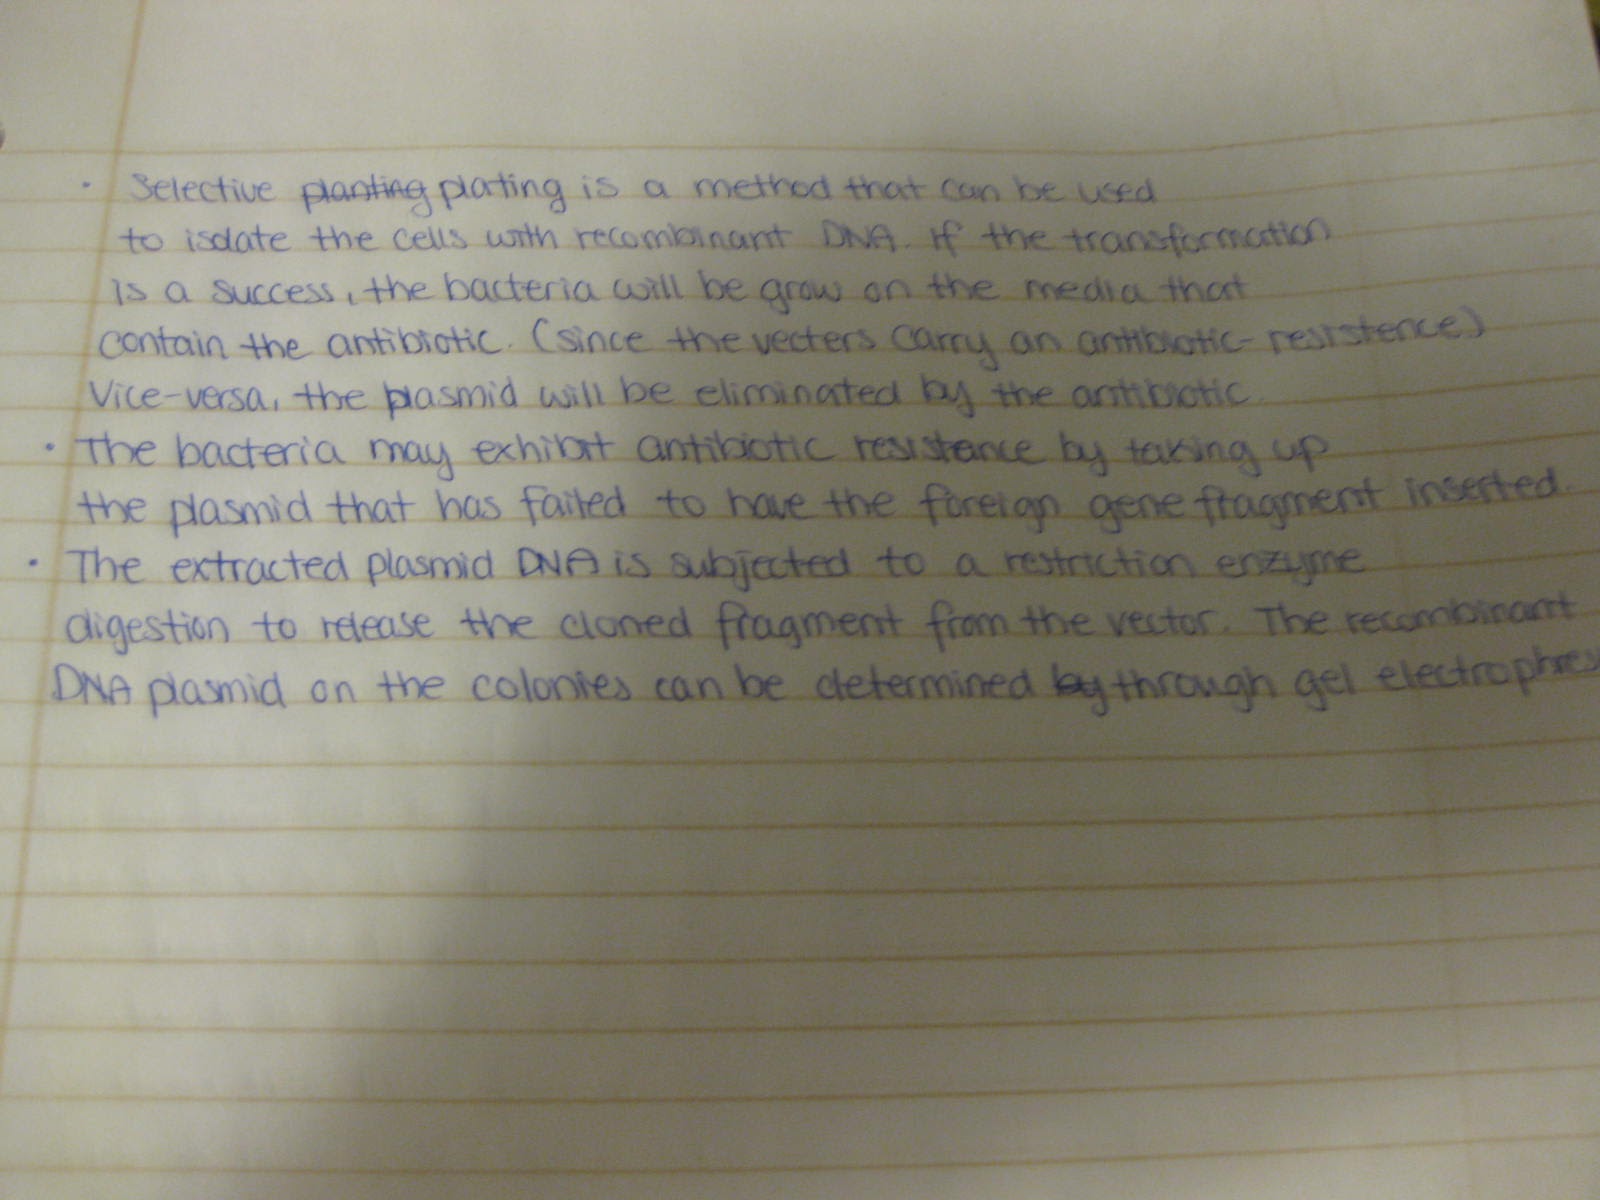 · Selective planting plating is a method that can be used
to isolate the cells with recombinant DNA. If the transformation
is a success, the bacteria will be grow on the media that
contain the antibiotic. (since the vecters carry an antibiotic-resistence)
Vice-versa, the plasmid will be eliminated by the antibiotic.
· The bacteria may exhibit antibiotic resistance by taking up
the plasmid that has failed to have the foreign gene fragment inserted.
· The extracted plasmid DNA is subjected to a restriction enzyme
digestion to release the cloned fragment from the vector. The recombinant
DNA plasmid on the colonies can be determined by through gel electrophres